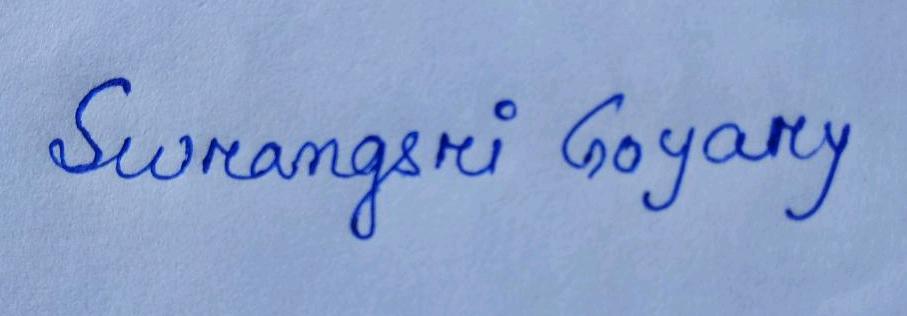 Swrangsri Goyary